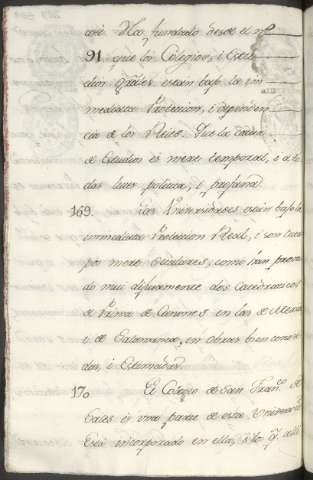 así. Ha fundado desde el nº
91. que los Colegios, i Estu-
dios grãles. están bajo la im-
mediata Proteccion, i dependen-
cia de los Reies. Que la causa
de Estudios es mere temporal, i a to-
das luces politica, i profana.
169. Las Universidades están bajo la
immediata Proteccion Real, i son Cuer-
pos mere Seculares, como hán prova-
do mui difusamente dos Cathedraticos
de Prima de Canones en las de Mexico
i de Salamanca, en obras bien conoci-
das, i estimadas.
170 El Colegio de San Franco. de
Sales es una parte de esta Universidad.
Está incorporado en ella,